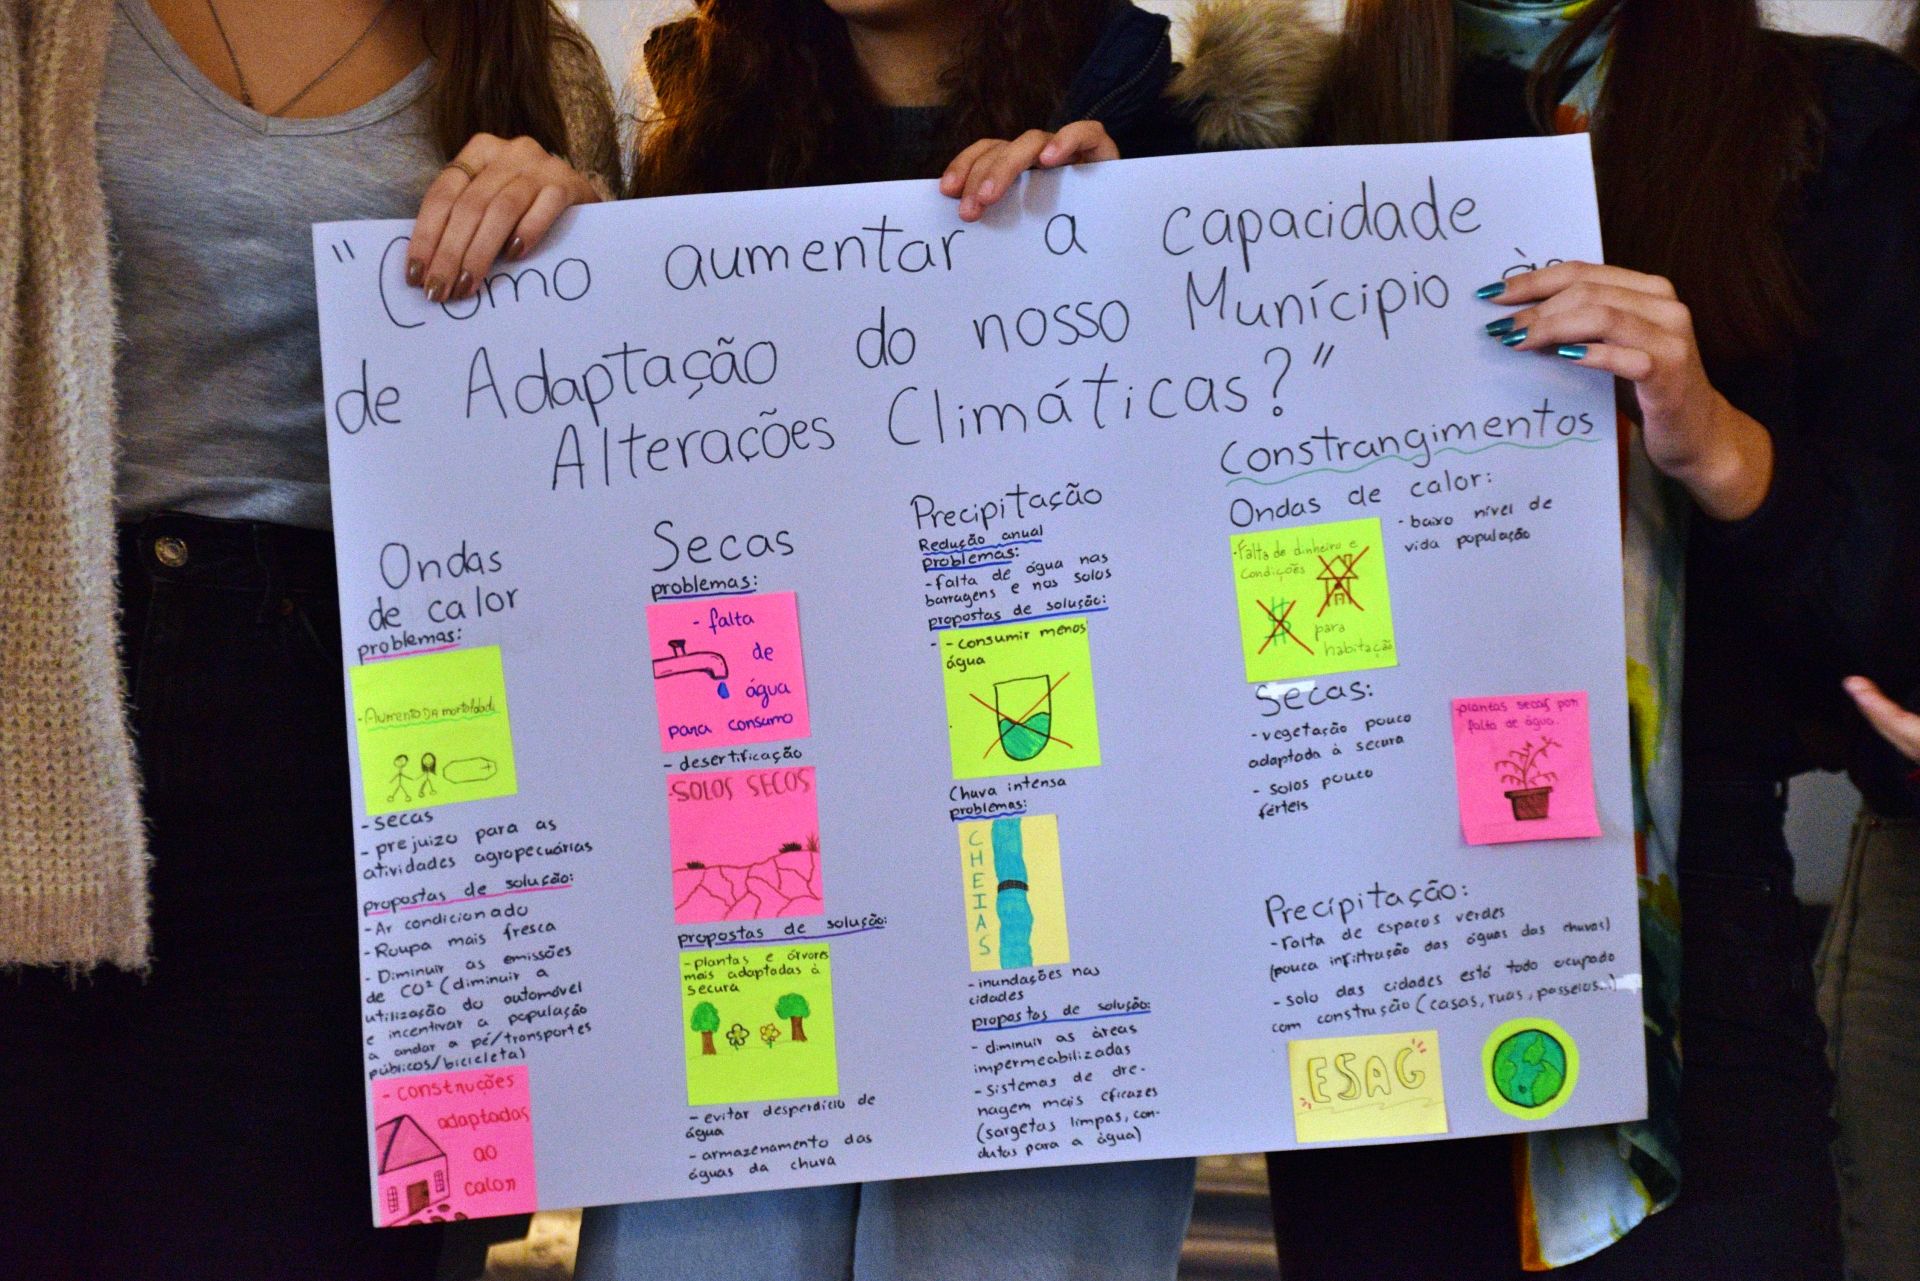 "Como aumentar a capacidade
de Adaptação do nosso Munícipio às
Alterações Climáticas?"
Ondas
de calor
problemas:
- Aumento DA mortalidade
- secas
- prejuízo para as
atividades agropecuárias
propostas de solução:
- Ar condicionado
- Roupa mais fresca
- Diminuir as emissões
de CO² (diminuir a
utilização do automóvel
e incentivar a população
a andar a pé/transportes
públicos/bicicleta)
- construções
adaptadas
ao
calor
Secas
problemas:
- falta
de
água
para consumo
- desertificação
-SOLOS SECOS
propostas de solução:
- plantas e árvores
mais adaptadas à
secura
- evitar desperdício de
água
- armazenamento das
águas da chuva
Precipitação
Redução anual
problemas:
- falta de água nas
barragens e nos solos
propostas de solução:
- consumir menos
água
Chuva intensa
problemas:
CHEIAS
- inundações nas
cidades
propostas de solução:
- diminuir as áreas
impermeabilizadas
- sistemas de dre-
nagem mais eficazes
(sargetas limpas, con-
dutas para a água)
Constrangimentos
Ondas de calor:
- Falta de dinheiro e
condições
$
para
habitação
- baixo nível de
vida população
Secas:
- vegetação pouco
adaptada à secura
- solos pouco
férteis
-plantas secas por
falta de água.
Precipitação:
- Falta de espaços verdes
(pouca infiltração das águas das chuvas)
- solo das cidades está todo ocupado
com construção (casas, ruas, passeios...)
ESAG